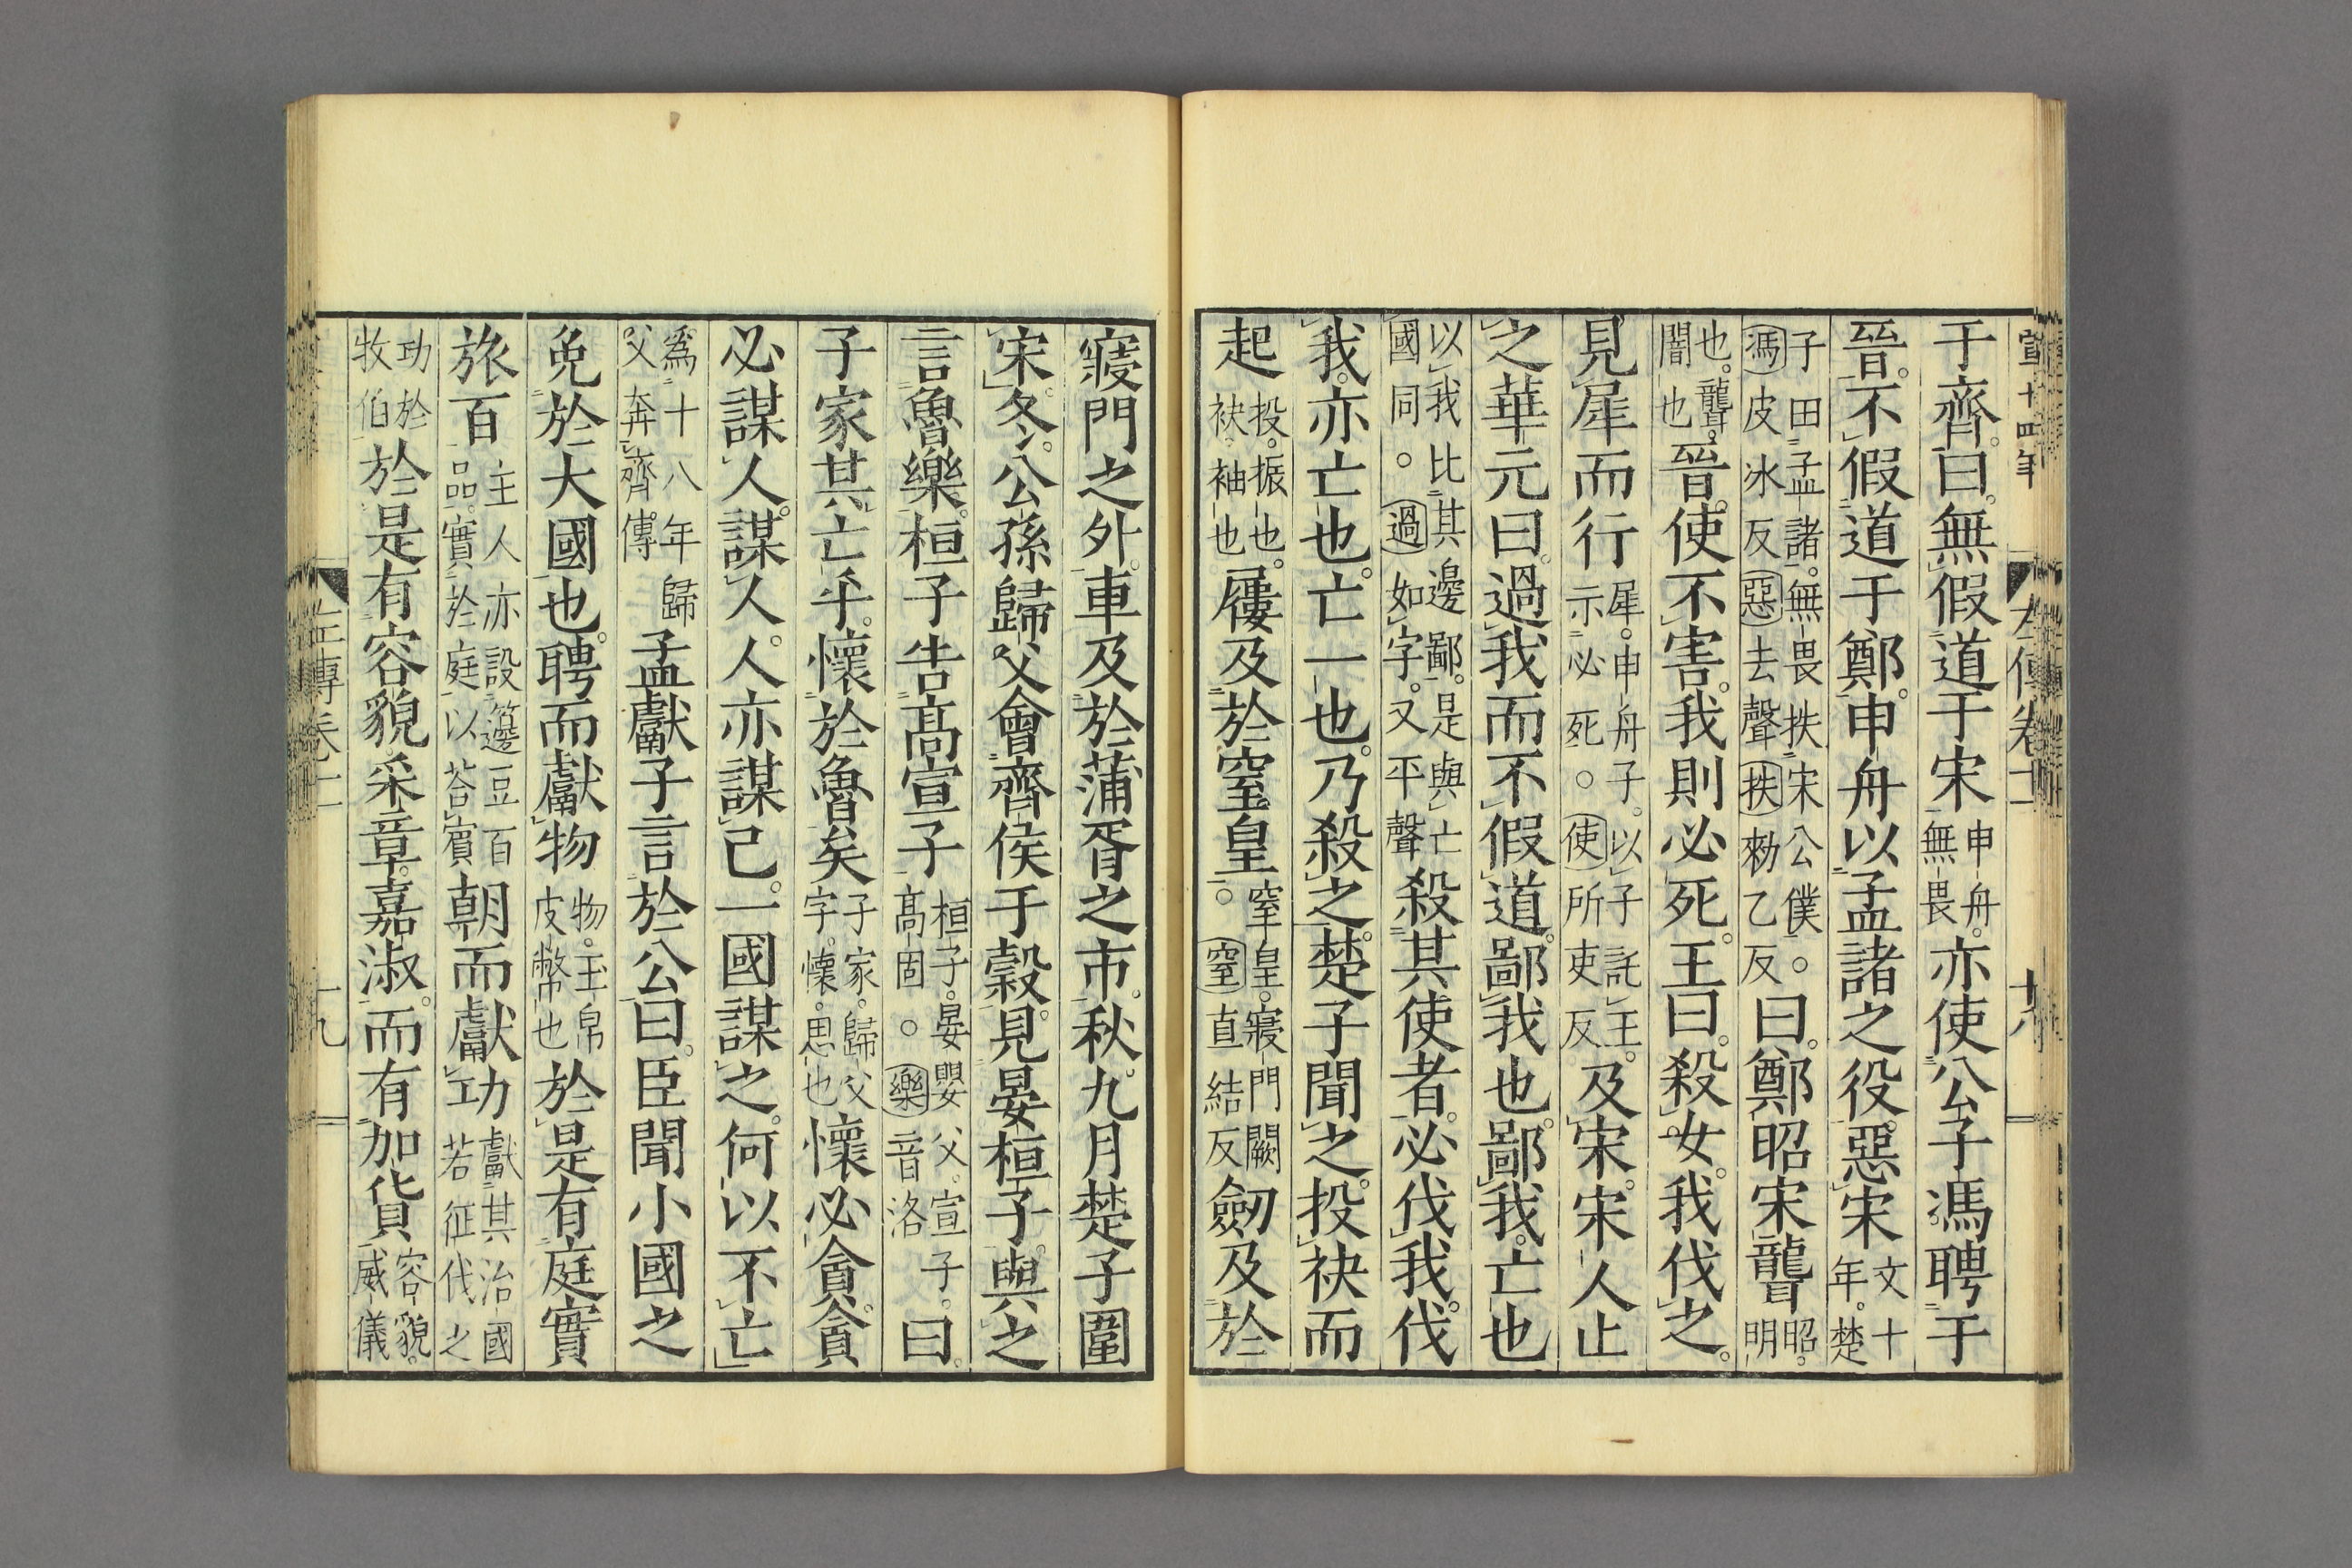 宣十四年 左傳卷十一 十八
于齊。曰。無假道于宋申舟。無畏亦使公子馮聘于
晉。不假道于鄭。申舟以孟諸之役。惡宋文十年。楚
子田孟諸。無畏抶宋公僕。○馮皮冰反惡去聲抶勑乙反曰。鄭昭宋聾昭。明
也。聾。闇也晉。使不害。我則必死。王曰。殺女。我伐之。
見犀而行犀。申舟子。以子託王。示必死。○使所吏反及宋。宋人止
之華元曰。過我而不假道。鄙我也。鄙我。亡也
以我比其邊鄙。是與亡國同。○過如字。又平聲殺其使者。必伐我。伐
我。亦亡也。亡一也。乃殺之。楚子聞之。投袂而
起投。振也。袂。袖也屨及於窒皇窒皇。寢門闕。○窒直結反劒及於
寢門之外。車及於蒲胥之市。秋。九月楚子圍
宋。冬。公孫歸父會齊侯于穀。見晏桓子。與之
言魯樂。桓子告高宣子桓子。晏嬰父。宣子。高固。○樂音洛曰。
子家其亡乎。懷於魯矣子家。歸父字。懷。思也懷必貪。貪
必謀人。謀人。人亦謀己。一國謀之。何以不亡
為十八年歸父奔齊傳孟獻子言於公曰。臣聞小國之
免於大國也。聘而獻物物。玉帛皮幣也於是有庭實
旅百主人亦設籩豆百品。實於庭以荅賓朝而獻功獻其治國若征伐之
功於牧伯於是有容貌。采章。嘉淑。而有加貨容貌。威儀
左傳卷十一 十九